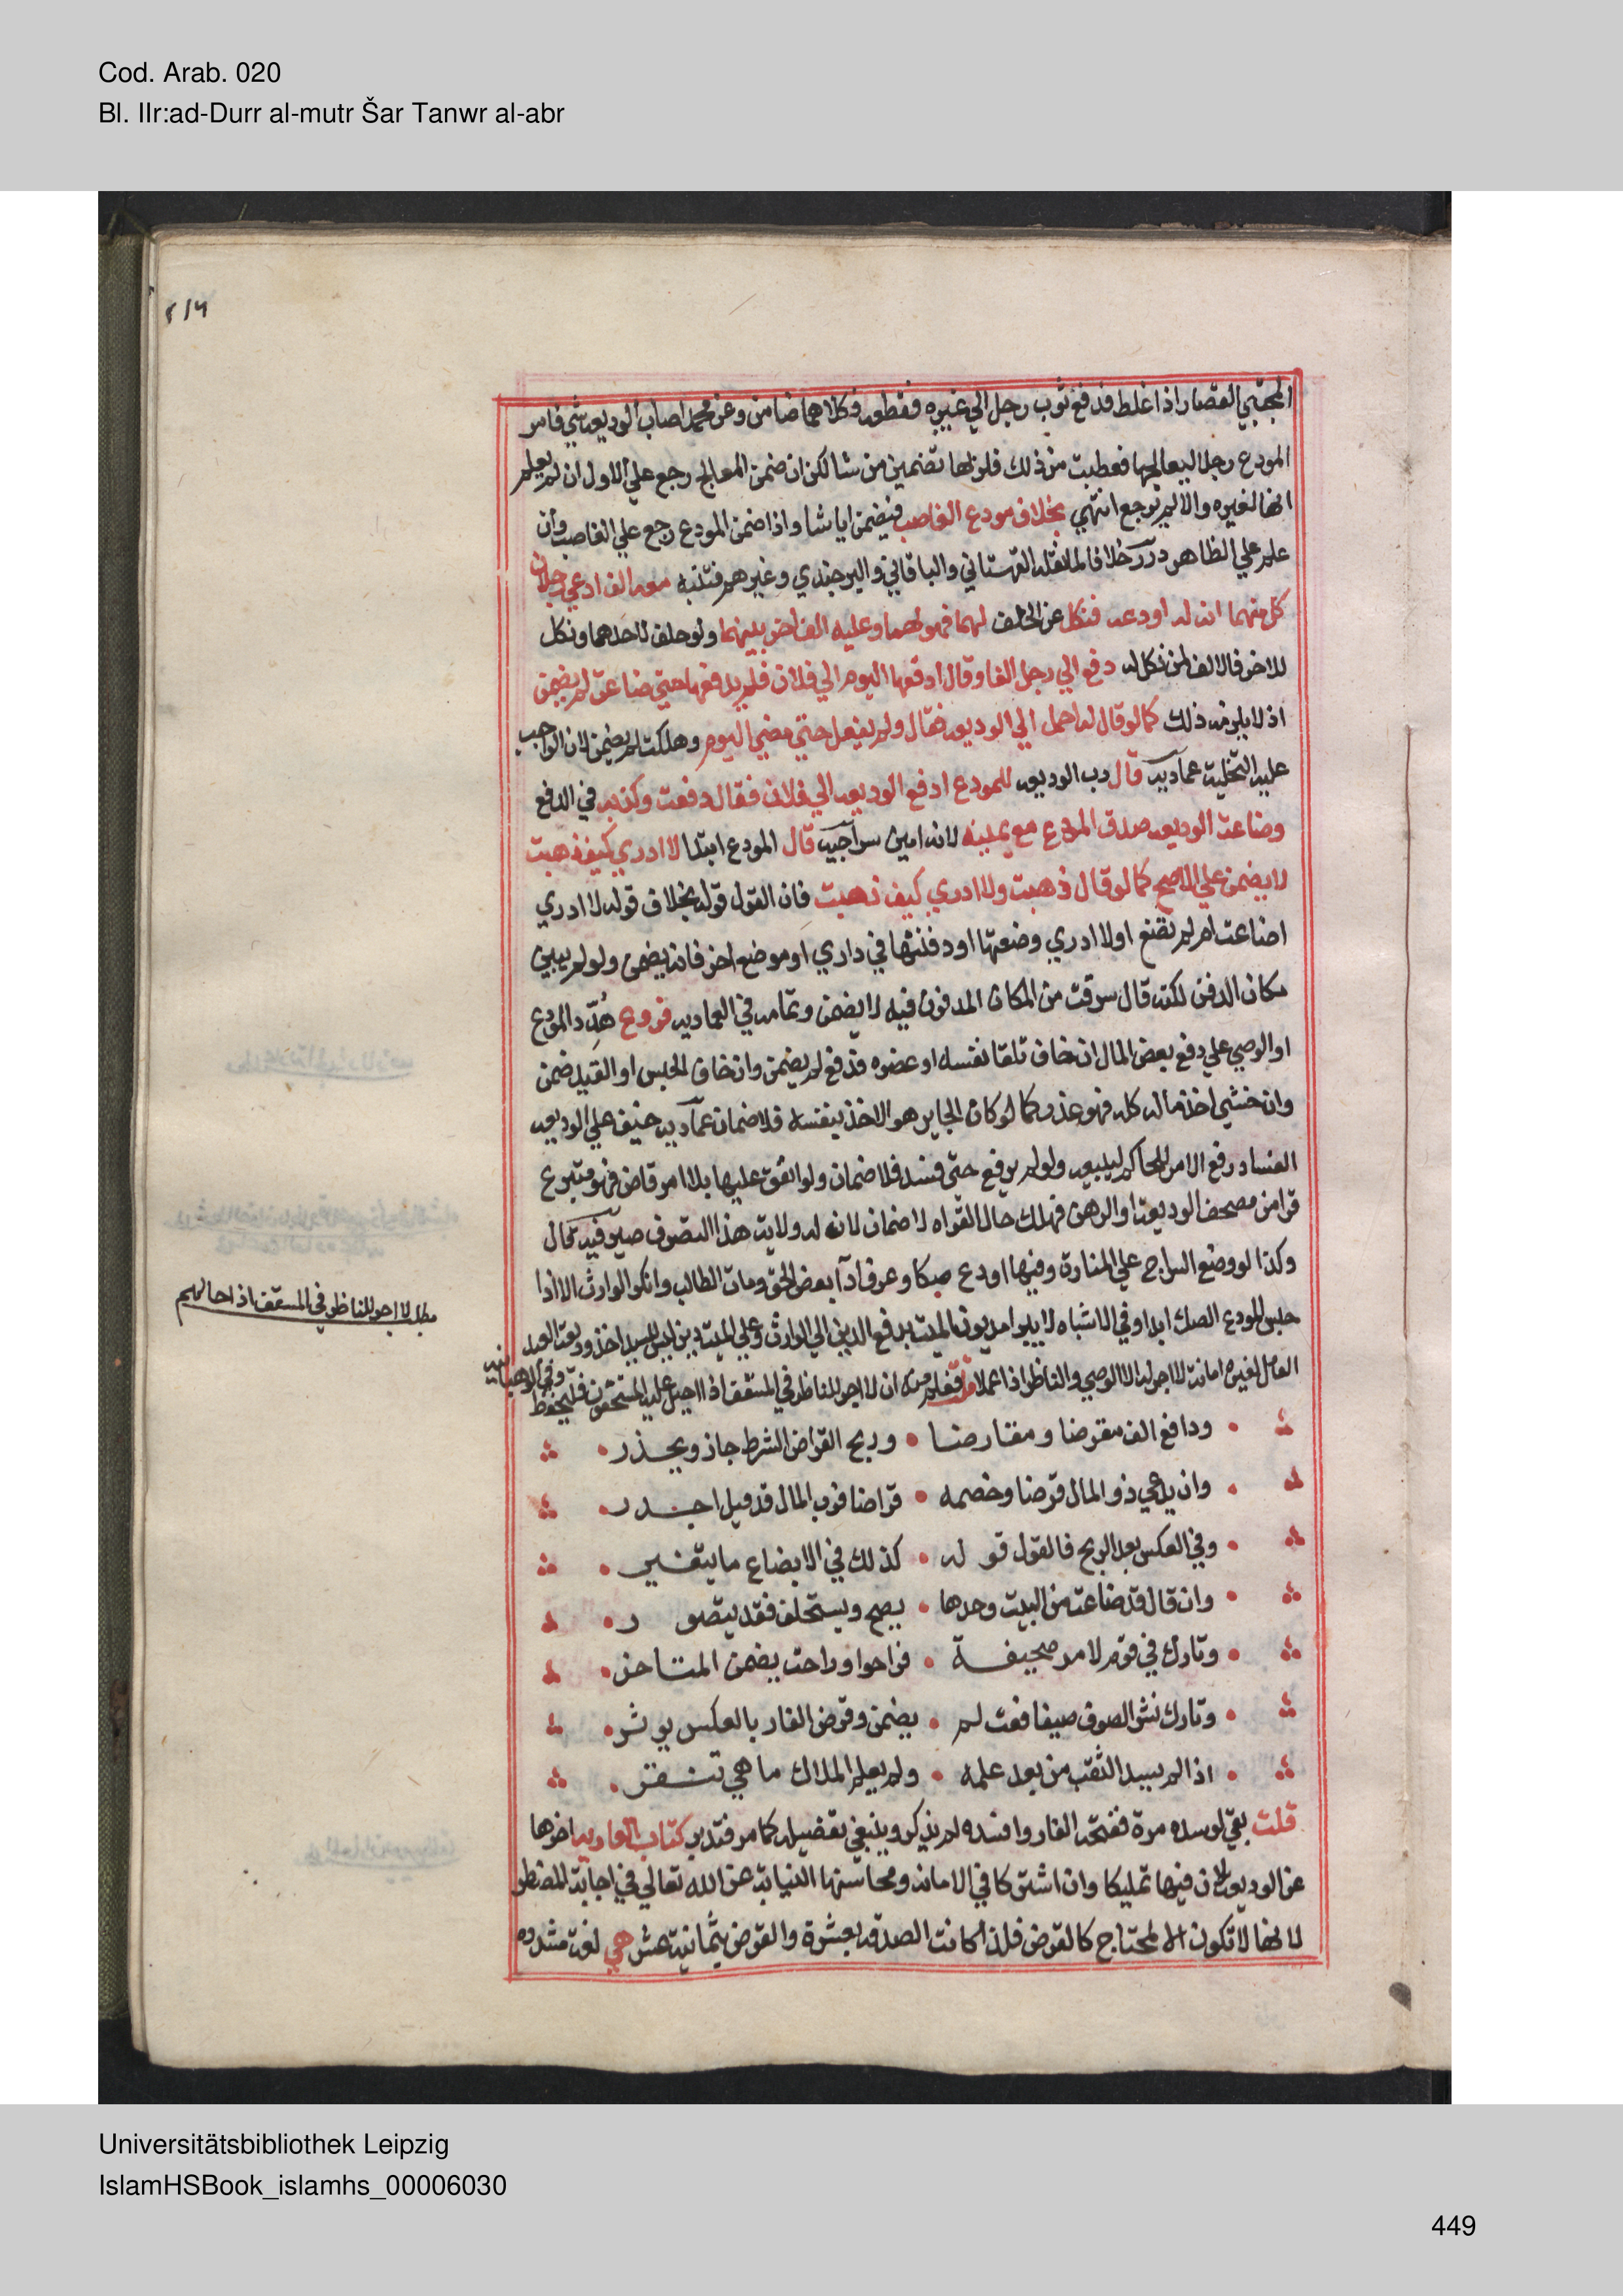 Cod. Arab. 020
Bl. IIr:ad-Durr al-mutr Šar Tanwr al-abr
٤١٦
المجتبي القصار اذا غلط فدفع ثوب رجل الي غيره فقطعه فكلاهما ضامن وعن محمد اصاب الوديعة شي فامر
المودع رجلا ليعالجها فعطبت من ذلك فلربها تضمين من شا لكن ان ضمن المعالج رجع علي الاول ان لم يعلم
انها لغيره والا لم يرجع انتهي بخلاف مودع الغاصب فيضمن ايا شا واذا ضمن المودع رجع علي الغاصب وان
علم علي الظاهر درر خلافا لما نقله القهستاني والباقاني والبرجندي وغيرهم فتنبه معه الف ادعي رجلان
كل منهما انه له اودعه فنكل عن الحلف لهما فهو لهما وعليه الف اخر بينهما ولو حلف لاحدهما ونكل
للاخر فالالف لمن نكل له دفع الي رجل الفا وقال ادفعها اليوم الي فلان فلم يدفعها حتي ضاعت لم يضمن
اذ لا يلزمه ذلك كما لو قال له احمل الي الوديعه فقال ولم يفعل حتي مضي اليوم وهلكت لم يضمن لان الواجب
عليه التخلية عماديه قال رب الوديعه للمودع ادفع الوديعه الي فلان فقال دفعت وكذبه في الدفع
وضاعت الوديعه صدق المودع مع يمينه لانه امين سراجيه قال المودع ابتدا لا ادري كيف ذهبت
لا يضمن علي الاصح كما لو قال ذهبت ولا ادري كيف ذهبت فان القول قوله بخلاف قوله لا ادري
اضاعت ام لم تضع او لا ادري وضعتها او دفنتها في داري او موضع اخر فانه يضمن ولو لم يبين
مكان الدفن لكنه قال سرقت من المكان المدفون فيه لا يضمن وتمامه في العماديه فروع هُدِّد المودع
او الوصي علي دفع بعض المال ان خاف تلف نفسه او عضوه فدفع لم يضمن وان خاف الحبس او القيد ضمن
وان خشي اخذ ماله كله فهو عذر كما لو كان الجاير هو الاخذ بنفسه فلا ضمان عماديه خيف علي الوديعه
الفساد رفع الامر للحاكم ليبيعه ولو لم يرفع حتي فسد فلا ضمان ولو انفق عليها بلا امر قاض فهو متبرع
قرا من مصحف الوديعة او الرهن فهلك حال القراه لا ضمان لان له ولاية هذا التصرف صيرفيه قال
وكذا لو وضع السراج علي المنارة وفيها اودع صكا وعرف ادآ بعض الحق ومات الطالب وانكر الوارث الادا
حبس المودع الصك ابدا وفي الاشباه لا يبرا مديون الميت بدفع الدين الي الوارث وعلي الميت دين ليس للسيد اخذ وديعة العبد
العامل لغيره امانة لا اجر له الا الوصي والناظر اذا عملا قلت فعلم منه ان لا اجر للناظر في المسقف اذا احيل عليه المستحقون فليحفظ
وفي الوهبانيه
ودافع الف مقرضا ومقارضا • وربح القراض الشرط جاز ويحذر
وان يدعي ذو المال قرضا وخصمه • قراضا فرب المال قد قيل اجدر
وفي العكس بعد الربح فالقول قوله • كذلك في الابضاع ما يتغير
وان قال قد ضاعت من البيت وحدها • يصح ويستحلف فقد يتصور
وتارك في قوم لامر صحيفة • فراحوا وراحت يضمن المتاخر
وتارك نشر الصوف صيفا فعث لم • يضمن وقرض الفار بالعكس يوثر
اذا لم يسد الثقب من بعد علمه • ولم يعلم الملاك ما هي تنقر
قلت بقي لو سده مرة ففتحه الفار وافسده لم يذكر وينبغي تفصيله كما مر فتدبر كتاب العاريه اخرها
عن الوديعه لان فيها تمليكا وان اشتركا في الامانه ومحاسنها النيابة عن الله تعالي في اجابة المضطر
لانها لا تكون الا لمحتاج كالقرض فلذا كانت الصدقه بعشرة والقرض بثمانية عشر هي لغة مشدده
مطلب لا اجر للناظر في المسقف اذا احالهم
Universitätsbibliothek Leipzig
IslamHSBook_islamhs_00006030
449